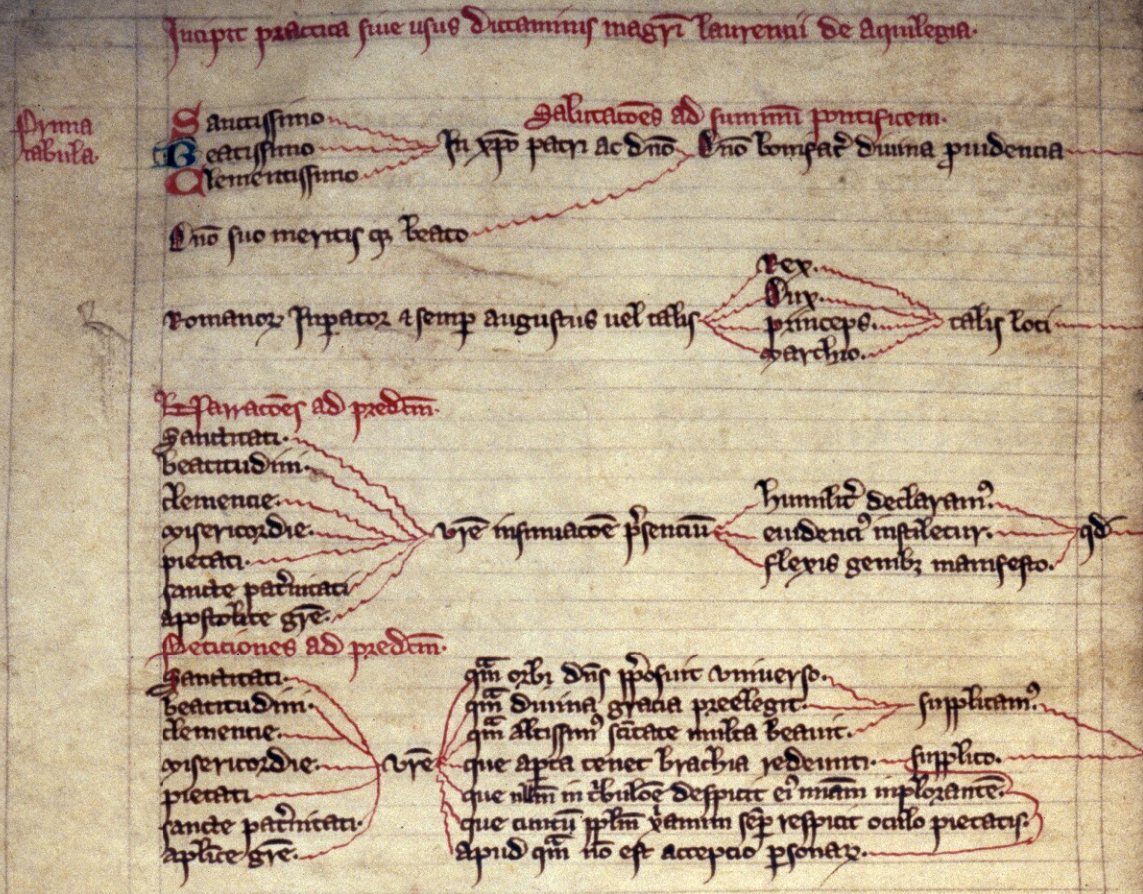 Incipit practica siue usus dictaminis magr̄i laurencii de aquilegia.
Prima tabula.
Salutac̄oes ad summū pontificem.
Sanctissimo
Beatissimo
Clementissimo
In xp̄o patri ac dn̄o
Dn̄o bonifac̄ diuina ꝓuidencia
Dn̄o suo meritis beato
Romanoꝝ Inꝑator ⁊ semꝑ augustus uel talis
Rex.
Dux.
princeps.
marchio.
talis loci
Narrac̄oes ad predc̄m.
Sanctitati.
beatitudini.
clemencie.
misericordie.
pietati.
sancte pat̄nitati
apostolice gr̄e.
vr̄e insinuac̄oe p̄senciū
humilit̄ declaramꝰ.
euidencꝰ instiletur.
flexis genibꝫ manifesto.
qd̄
Peticiones ad predc̄m.
Sanctitati.
beatitudini.
clemencie.
misericordie.
pietati
sancte pat̄nitati.
aplice gr̄e.
vr̄e
qm̄ orbi dn̄s p̄posuit vniuerso.
qm̄ diuina gracia preelegit.
qm̄ altissimꝰ sc̄itate multa beauit.
que aꝑta tenet brachia redeunti.
que nll̄m in t̄bulōe despicit eiꝰ miam̄ inplorantē.
que cunctū ppl̄m x̄anum sēꝑ respicit oculo pietatis.
apud qm̄ nō est accepcio ꝑsonaꝝ.
supplicamꝰ.
supplico.